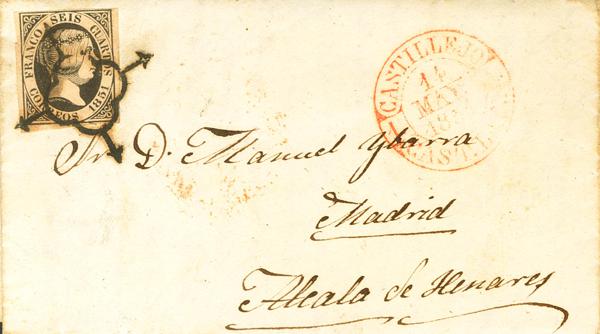 FRANCO SEIS CUARTOS
CORREOS 1851
CASTILLEJO
14
MAY
18
CAST.
Sr. D. Manuel Ybarra
Madrid
Alcala de Henares